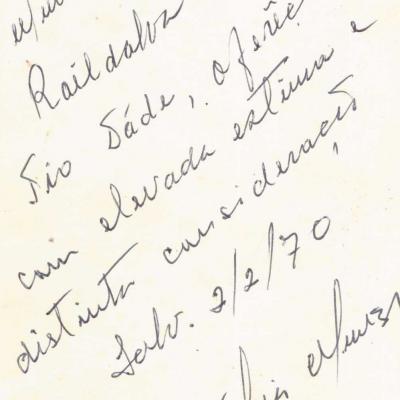 Raildalva
Tio Dáde, ofereç
com elevada estima e
distinta consideração,
Salv. 2/2/70